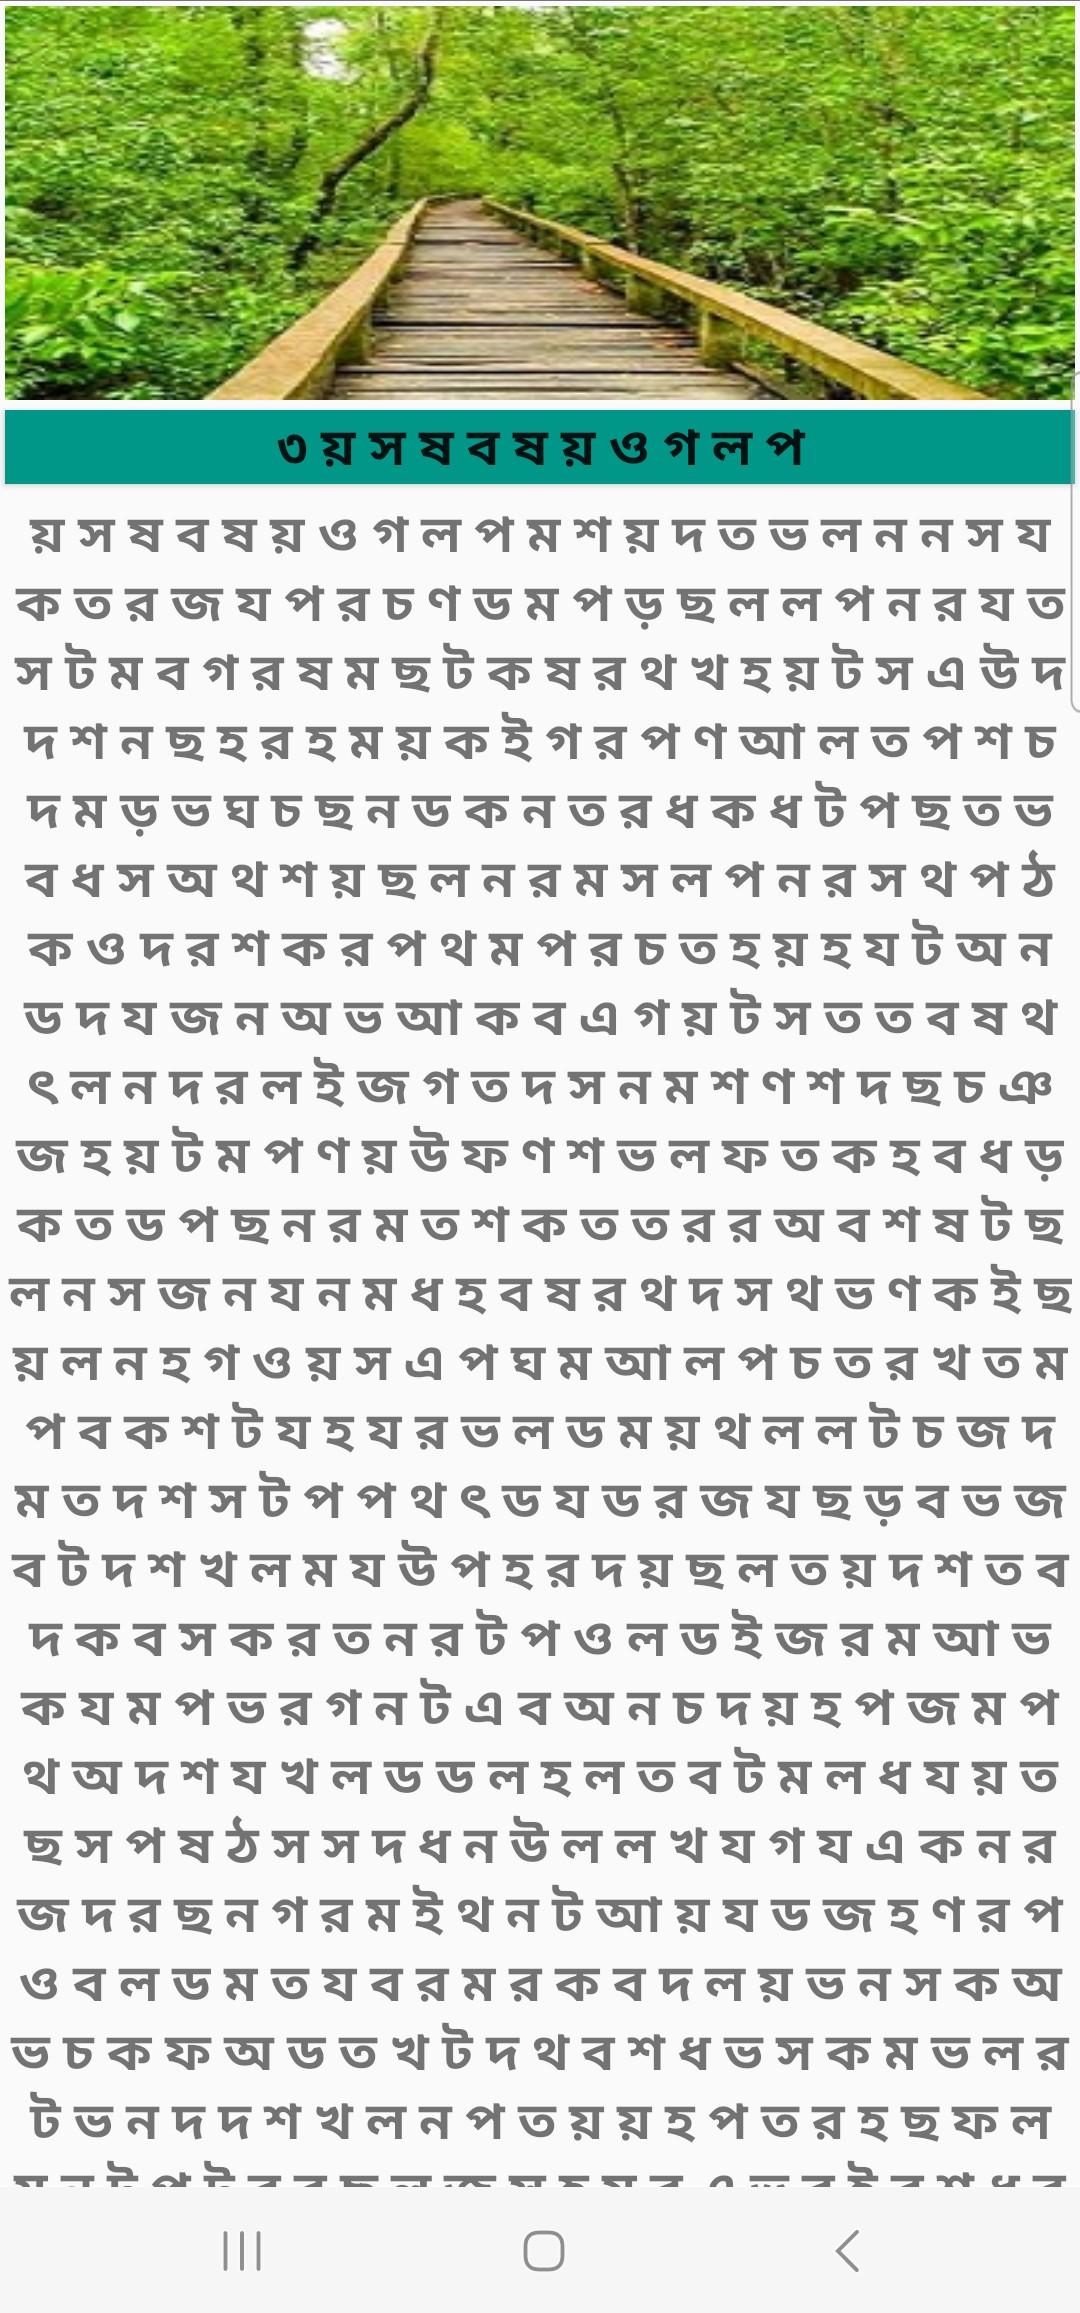 ৩ য় স ষ ব ষ য় ও গ ল প
য় স ষ ব ষ য় ও গ ল প ম শ য় দ ত ভ ল ন ন স য
ক ত র জ য প র চ ণ ড ম প ড় ছ ল ল প ন র য ত
স ট ম ব গ র ষ ম ছ ট ক ষ র থ খ হ য় ট স এ উ দ
দ শ ন ছ হ র হ ম য় ক ই গ র প ণ আ ল ত প শ চ
দ ম ড় ভ ঘ চ ছ ন ড ক ন ত র ধ ক ধ ট প ছ ত ভ
ব ধ স অ থ শ য় ছ ল ন র ম স ল প ন র স থ প ঠ
ক ও দ র শ ক র প থ ম প র চ ত হ য় হ য ট অ ন
ড দ য জ ন অ ভ আ ক ব এ গ য় ট স ত ত ব ষ থ
ৎ ল ন দ র ল ই জ গ ত দ স ন ম শ ণ শ দ ছ চ ঞ
জ হ য় ট ম প ণ য় উ ফ ণ শ ভ ল ফ ত ক হ ব ধ ড়
ক ত ড প ছ ন র ম ত শ ক ত ত র র অ ব শ ষ ট ছ
ল ন স জ ন য ন ম ধ হ ব ষ র থ দ স থ ভ ণ ক ই ছ
য় ল ন হ গ ও য় স এ প ঘ ম আ ল প চ ত র খ ত ম
প ব ক শ ট য হ য র ভ ল ড ম য় থ ল ল ট চ জ দ
ম ত দ শ স ট প প থ ৎ ড য ড র জ য ছ ড় ব ভ জ
ব ট দ শ খ ল ম য উ প হ র দ য় ছ ল ত য় দ শ ত ব
দ ক ব স ক র ত ন র ট প ও ল ড ই জ র ম আ ভ
ক য ম প ভ র গ ন ট এ ব অ ন চ দ য় হ প জ ম প
থ অ দ শ য খ ল ড ড ল হ ল ত ব ট ম ল ধ য য় ত
ছ স প ষ ঠ স স দ ধ ন উ ল ল খ য গ য এ ক ন র
জ দ র ছ ন গ র ম ই থ ন ট আ য় য ড জ হ ণ র প
ও ব ল ড ম ত য ব র ম র ক ব দ ল য় ভ ন স ক অ
ভ চ ক ফ অ ড ত খ ট দ থ ব শ ধ ভ স ক ম ভ ল র
ট ভ ন দ দ শ খ ল ন প ত য় য় হ প ত র হ ছ ফ ল